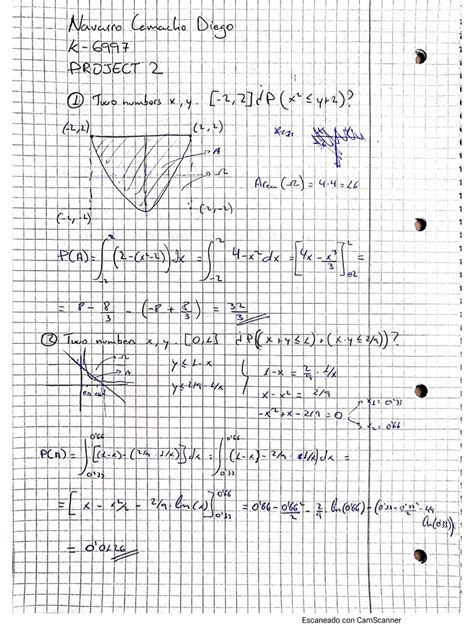 Navarro Camacho Diego
K-6997
PROJECT 2
① Two numbers x, y. [-2,2] ¿P(x² ≤ y+2)?
(-2,2) (2,2)
A
Ω
Area (Ω) = 4·4 = 16
(-2,-2) (2,-2)
P(A) = ∫_{-2}^{2} (2-(x²-2)) dx = ∫_{-2}^{2} 4-x² dx = [4x - x³/3]_{-2}^{2} =
= 8 - 8/3 - (-8 + 8/3) = 32/3
② Two numbers x, y. [0,1] ¿P((x+y ≤ 1) + (x·y ≤ 2/9))?
Ω
A
y ≤ 1-x
y ≤ 2/9 · 1/x
1-x = 2/9 · 1/x
x - x² = 2/9
-x² + x - 2/9 = 0
x₁ = 0'33
x₂ = 0'66
P(A) = ∫_{0'33}^{0'66} [(1-x) - (2/9 · 1/x)] dx = ∫_{0'33}^{0'66} (1-x) - 2/9 · 1/x dx =
= [x - x²/2 - 2/9 · ln(x)]_{0'33}^{0'66} = 0'66 - 0'66²/2 - 2/9 · ln(0'66) - (0'33 - 0'33²/2 - ln(0'33))
= 0'0126
Escaneado con CamScanner